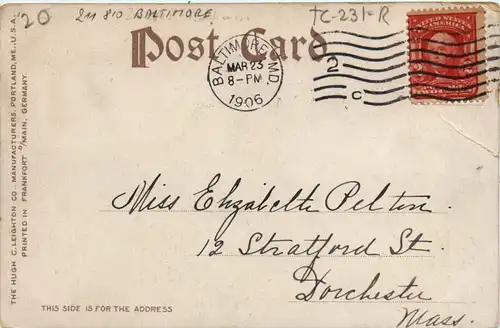 20
211 810 BALTIMORE
TC-231-R
Post Card
BALTIMORE, MD.
MAR 23
8-PM
1906
2
C
UNITED STATES
OF AMERICA
Miss Elizabeth Pelton.
12 Stratford St.
Dorchester
Mass.
THIS SIDE IS FOR THE ADDRESS
THE HUGH C. LEIGHTON CO., MANUFACTURERS, PORTLAND, ME., U.S.A.
PRINTED IN FRANKFORT o/MAIN, GERMANY.